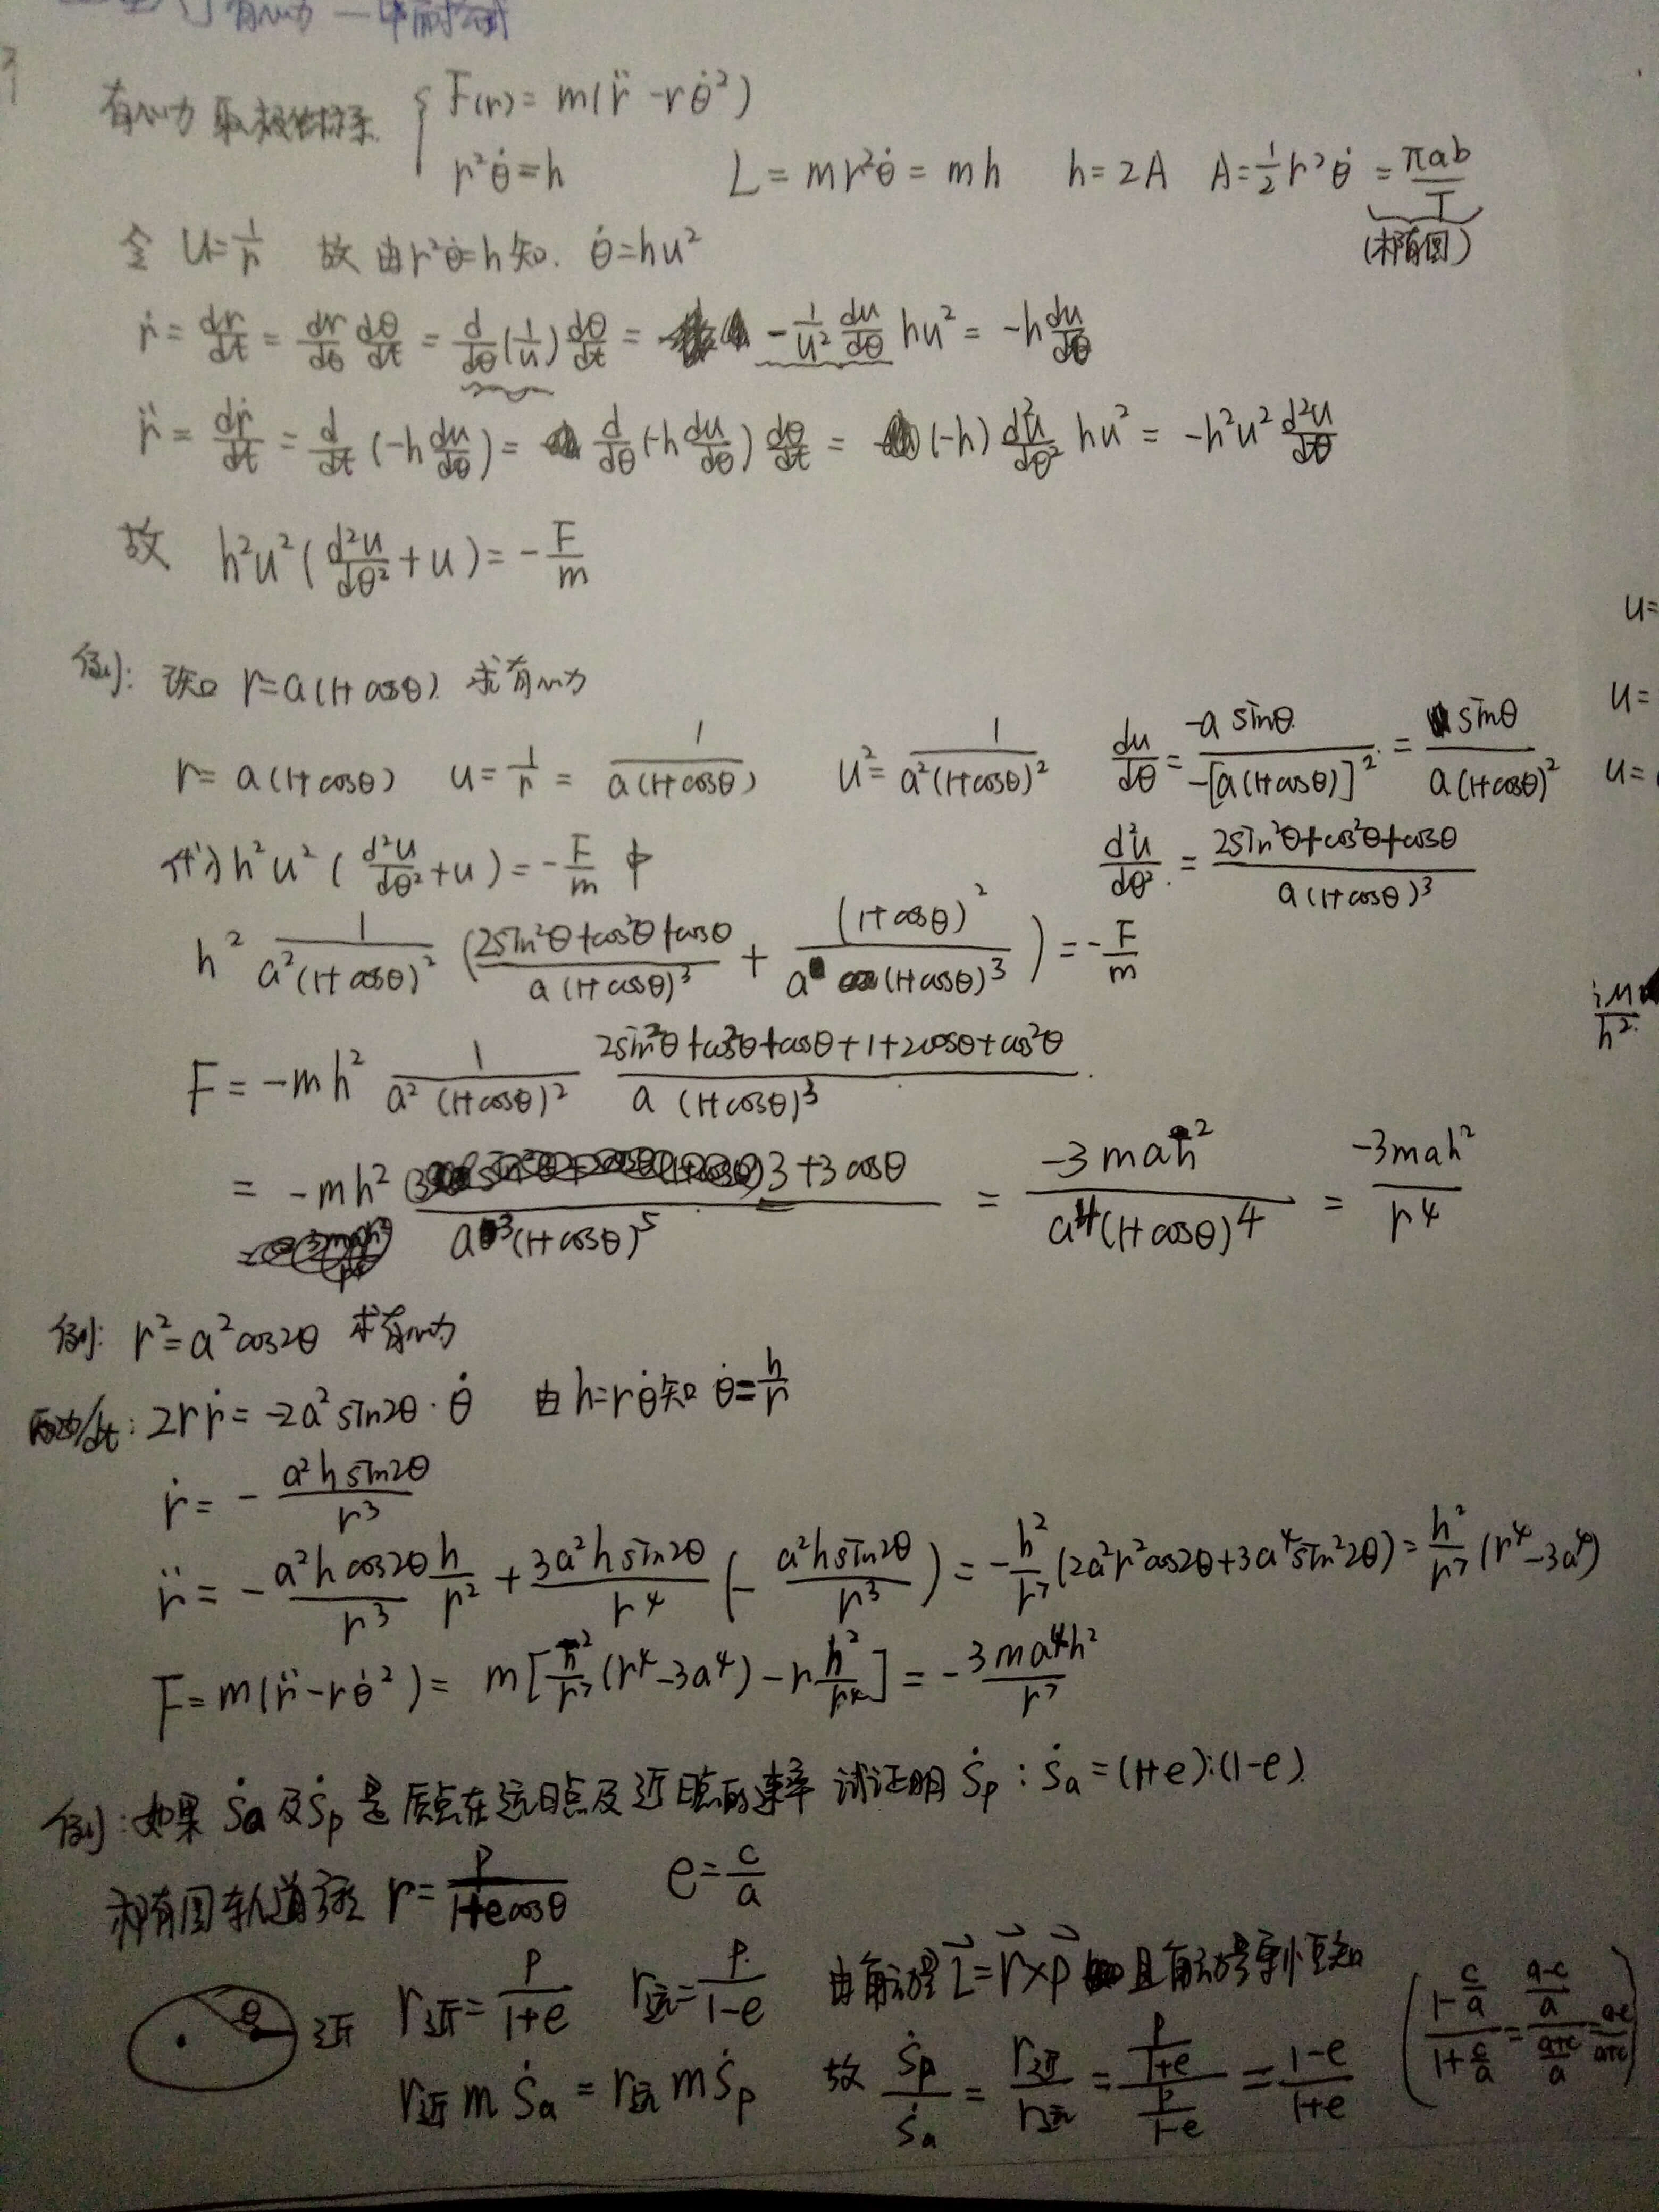 有心力
有心力 取极坐标系 { F(r) = m(r̈ - rθ̇²)
r²θ̇ = h L = mr²θ̇ = mh h = 2A A = 1/2 r²θ̇ = πab/T
(椭圆)
令 u = 1/r 故由 r²θ̇ = h 知. θ̇ = hu²
ṙ = dr/dt = dr/dθ dθ/dt = d/dθ(1/u) dθ/dt = -1/u² du/dθ hu² = -h du/dθ
r̈ = dṙ/dt = d/dt(-h du/dθ) = d/dθ(-h du/dθ) dθ/dt = (-h) d²u/dθ² hu² = -h²u² d²u/dθ
故 h²u²(d²u/dθ² + u) = -F/m
u=
例: 已知 r = a(1+cosθ). 求有心力
u=
r = a(1+cosθ) u = 1/r = 1/a(1+cosθ) u² = 1/a²(1+cosθ)² du/dθ = -a sinθ/-[a(1+cosθ)]² = sinθ/a(1+cosθ)²
u=
代入 h²u²(d²u/dθ² + u) = -F/m 中 d²u/dθ² = 2sin²θ+cos²θ+cosθ/a(1+cosθ)³
h² 1/a²(1+cosθ)² (2sin²θ+cos²θ+cosθ/a(1+cosθ)³ + (1+cosθ)²/a(1+cosθ)³) = -F/m
h²
F = -mh² 1/a²(1+cosθ)² 2sin²θ+cos²θ+cosθ+1+2cosθ+cos²θ/a(1+cosθ)³
= -mh² 3+3cosθ/a³(1+cosθ)⁵ = -3mah²/a⁴(1+cosθ)⁴ = -3mah²/r⁴
例: r² = a²cos2θ 求有心力
两边/dt: 2rṙ = -2a²sin2θ·θ̇ 由 h = rθ̇ 知 θ̇ = h/r
ṙ = -a²h sin2θ/r³
r̈ = -a²h cos2θ/r³ h/r² + 3a²h sin2θ/r⁴ (-a²h sin2θ/r³) = -h²/r⁷(2a²r²cos2θ+3a⁴sin²2θ) = h²/r⁷(r⁴-3a⁴)
F = m(r̈ - rθ̇²) = m[h²/r⁷(r⁴-3a⁴) - r h²/r⁴] = -3ma⁴h²/r⁷
例: 如果 ṡa 及 ṡp 是质点在远日点及近日点的速率 试证明 ṡp : ṡa = (1+e):(1-e).
椭圆轨道 r = p/1+ecosθ e = c/a
近 r近 = p/1+e r远 = p/1-e 由角动量 L⃗ = r⃗×p⃗ 且角动量守恒知
r近 m ṡa = r远 m ṡp 故 ṡp/ṡa = r近/r远 = p/1+e / p/1-e = 1-e/1+e